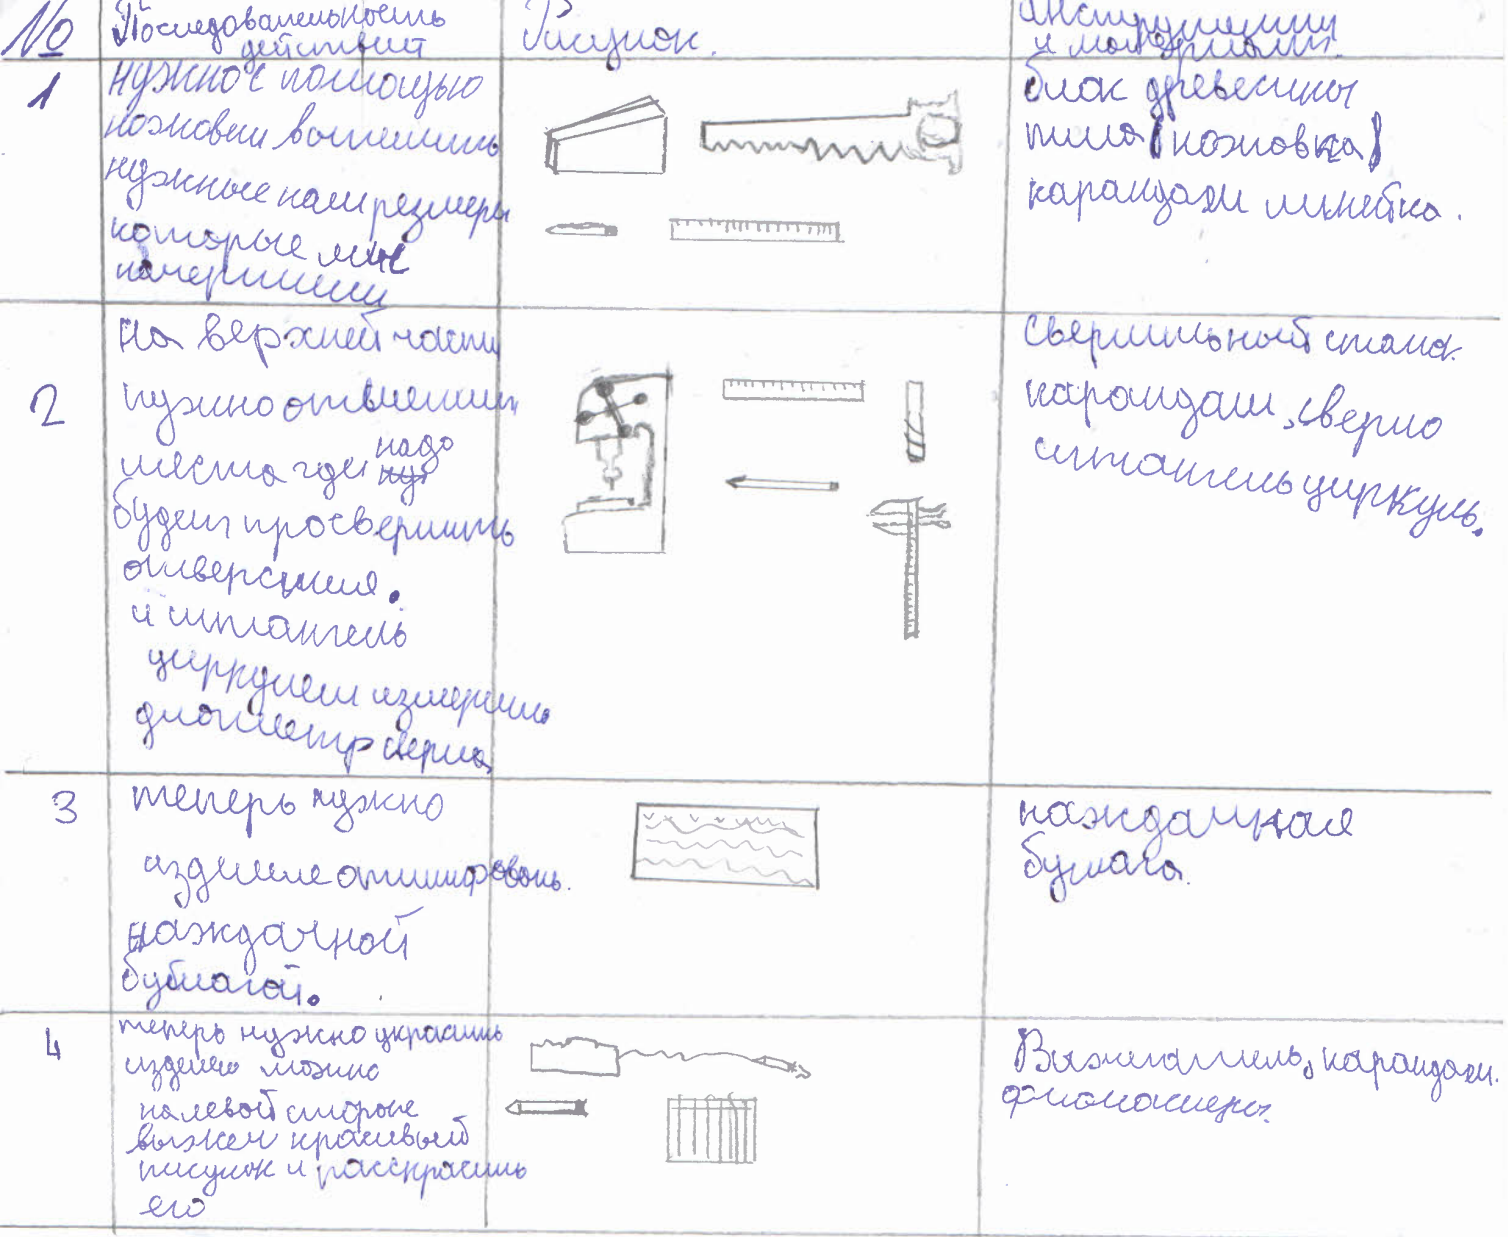 №
Последовательность
действий
Рисунок.
инструменты
и материалы.
1
нужно с помощью
ножовки выпилить
нужные нам резмеры
которые мы
начертили
блок древесины
пила (ножовка)
карандаш линейка.
2
на верхней части
нужно отметить
места где надо
будет просверлить
отверстия.
и штангель
циркулем измерить
диометр сверла
сверлильный станок
карандаш, сверло
штангель циркуль.
3
теперь нужно
изделие отшлифовать.
наждачной
бумагой.
наждачная
бумага.
4
теперь нужно украсить
изделие можно
на левой стороне
выжеч красивый
рисунок и расскрасить
его
Выжигатель, карандаш.
фломастеры.